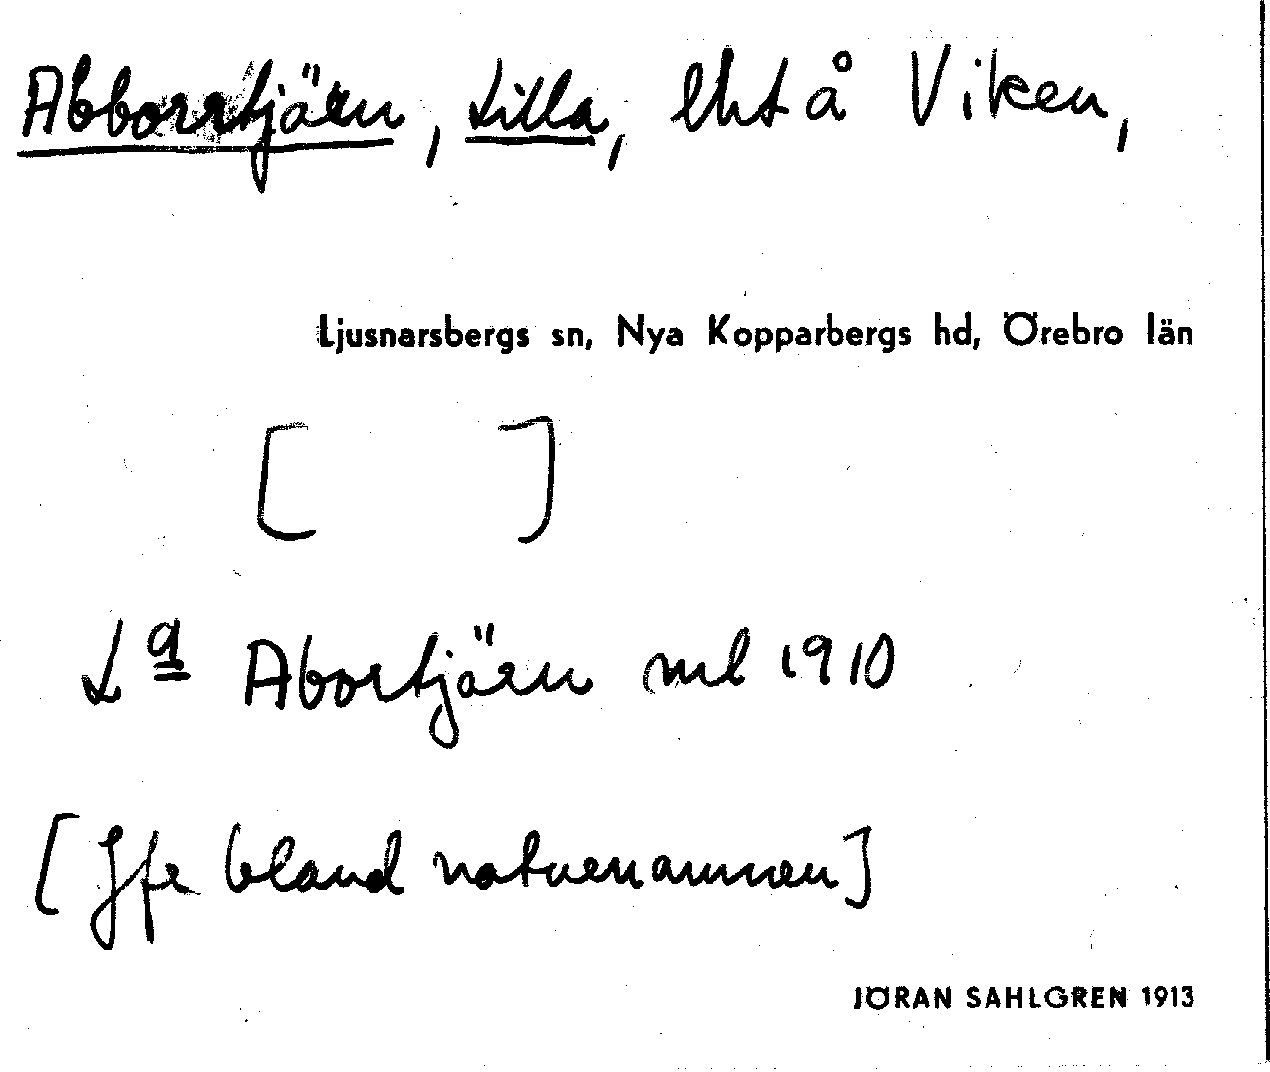 Abborrtjärn, Lilla, lht å Viken,
Ljusnarsbergs sn, Nya Kopparbergs hd, Örebro län
[ ]
La Abortjärn ml 1910
[Jfr bland naturnamnen]
JÖRAN SAHLGREN 1913